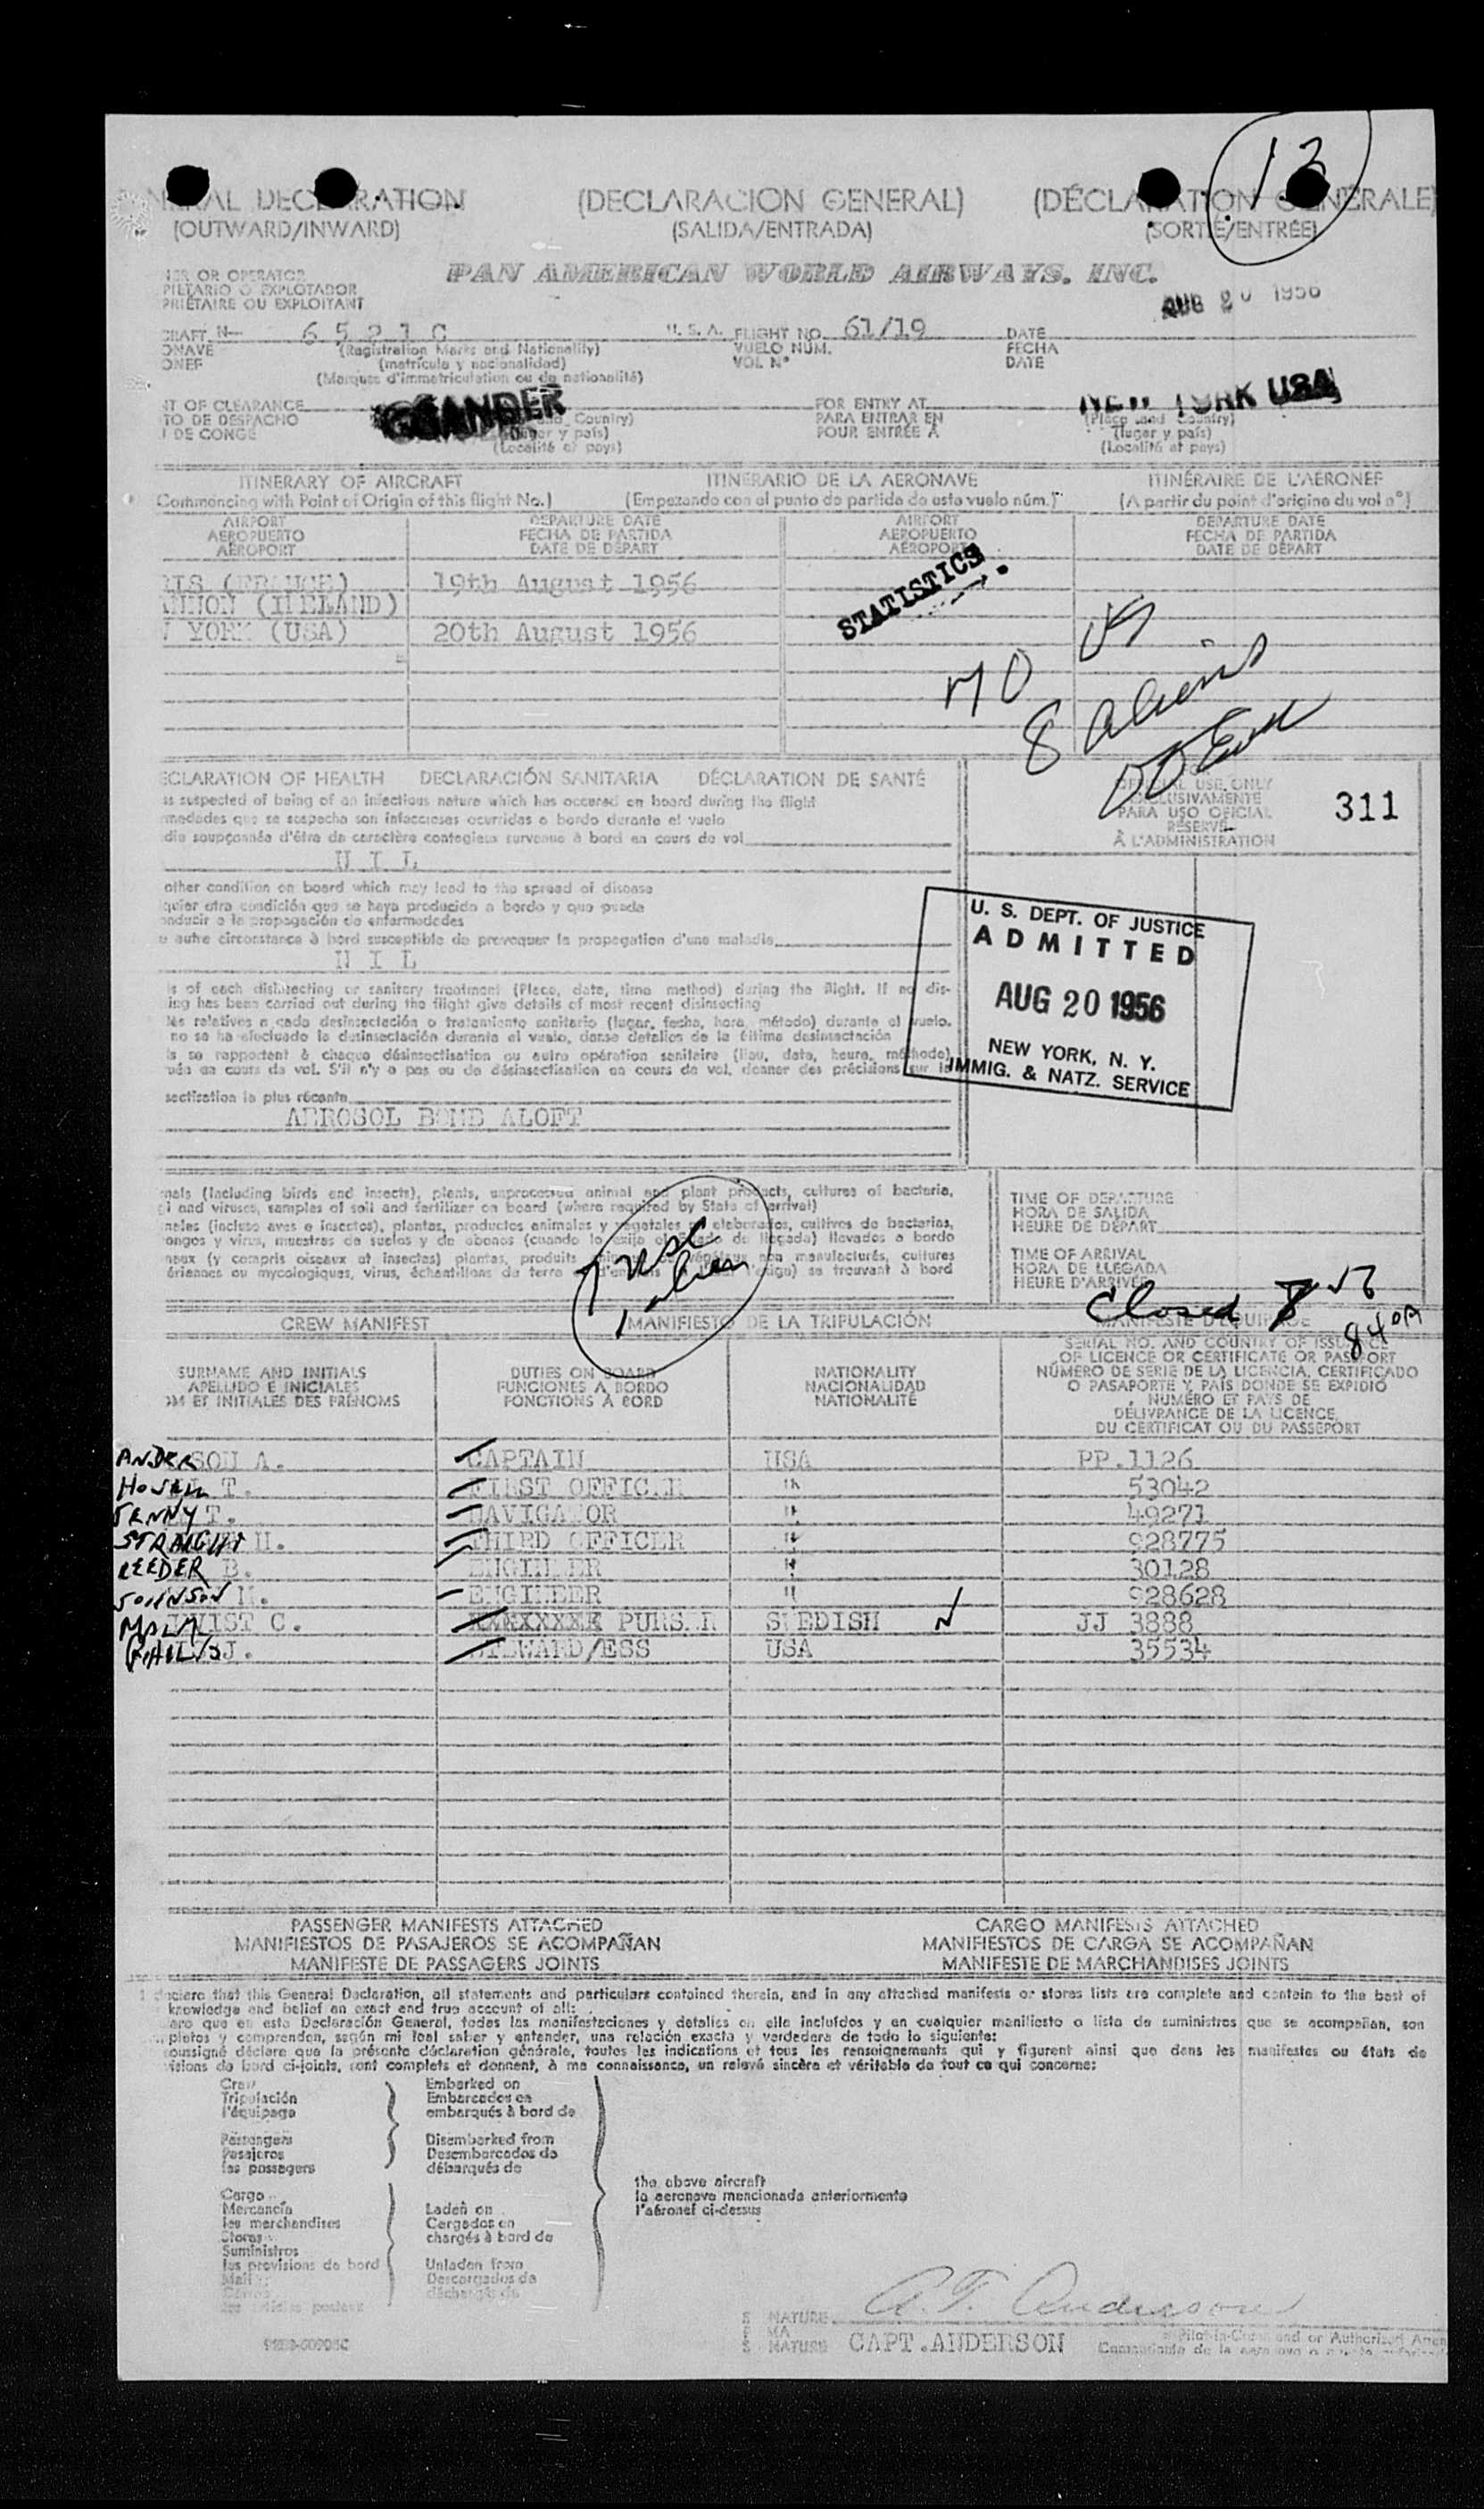 13
RATION (DECLARACIÓN GENERAL)
(OUTWARD/INWARD) (SALIDA/ENTRADA) (SORTIE/ENTRÉE)
OR OPERATOR PAN AMERICAN WORLD AIRWAYS, INC.
O EXPLOTADOR
PRIÉTAIRE OU EXPLOITANT AUG 20 1956
N— 6521C U.S.A. FLIGHT NO. 61/19 DATE
(Registration Marks and Nationality) VUELO NÚM. FECHA
(matrícula y nacionalidad) VOL Nº DATE
(Marques d'immatriculation ou de nationalité)
OF CLEARANCE GANDER FOR ENTRY AT NEW YORK USA
TO DE DESPACHO Country) PARA ENTRAR EN (Place and Country)
DE CONGÉ y país) POUR ENTRÉE À (lugar y país)
(Localité et pays) (Localité et pays)
ITINERARY OF AIRCRAFT ITINERARIO DE LA AERONAVE ITINÉRAIRE DE L'AÉRONEF
Commencing with Point of Origin of this flight No.) (Empezando con el punto de partida de este vuelo núm.) (A partir du point d'origine du vol nº)
AIRPORT DEPARTURE DATE AIRPORT DEPARTURE DATE
AEROPUERTO FECHA DE PARTIDA AEROPUERTO FECHA DE PARTIDA
AÉROPORT DATE DE DÉPART AÉROPORT DATE DE DÉPART
RIS (FRANCE) 19th August 1956
ANNON (IRELAND) STATISTICS
YORK (USA) 20th August 1956
70 US
8 aliens
ECLARATION OF HEALTH DECLARACIÓN SANITARIA DÉCLARATION DE SANTÉ
ss suspected of being of an infectious nature which has occured on board during the flight USE ONLY
rmedades que se sospecha son infecciosas ocurridas a bordo durante el vuelo EXCLUSIVAMENTE 311
die soupçonnée d'être de caractère contagieux survenue à bord en cours de vol PARA USO OFICIAL
RÉSERVÉ
À L'ADMINISTRATION
N I L
other condition on board which may lead to the spread of disease
quier otra condición que se haya producido a bordo y que pueda
onducir a la propagación de enfermedades
e autre circonstance à bord susceptible de provoquer la propagation d'une maladie
N I L
U. S. DEPT. OF JUSTICE
ADMITTED
AUG 20 1956
NEW YORK, N. Y.
IMMIG. & NATZ. SERVICE
ls of each disinsecting or sanitary treatment (Place, date, time method) during the flight. If no dis-
ing has been carried out during the flight give details of most recent disinsecting
les relativos a cada desinsectación o tratamiento sanitario (lugar, fecha, hora, método) durante el vuelo.
no se ha efectuado la desinsectación durante el vuelo, danse detalles de la última desinsectación
ls se rapportent à chaque désinsectisation ou autre opération sanitaire (lieu, date, heure, méthode)
en cours de vol. S'il n'y a pas eu de désinsectisation en cours de vol, donner des précisions sur la
sectisation la plus récente
AEROSOL BOMB ALOFT
mals (Including birds and insects), plants, unprocessed animal and plant products, cultures of bacteria,
and viruses, samples of soil and fertilizer on board (where required by State of arrival)
males (incluso aves e insectos), plantas, productos animales y vegetales elaborados, cultivos de bacterias,
ongos y virus, muestras de suelos y de abonos (cuando lo exija de llegada) llevados a bordo
maux (y compris oiseaux et insectes) plantes, produits non manufacturés, cultures
ériennes ou mycologiques, virus, échantillons de terre se trouvant à bord
TIME OF DEPARTURE
HORA DE SALIDA
HEURE DE DÉPART
TIME OF ARRIVAL
HORA DE LLEGADA
HEURE D'ARRIVÉE
7 usc
1 alien
Closed
840A
CREW MANIFEST MANIFIESTO DE LA TRIPULACIÓN MANIFESTE D'ÉQUIPAGE
SURNAME AND INITIALS DUTIES ON BOARD NATIONALITY SERIAL NO. AND COUNTRY OF ISSUANCE
APELLIDO E INICIALES FUNCIONES A BORDO NACIONALIDAD OF LICENCE OR CERTIFICATE OR PASSPORT
OM ET INITIALES DES PRÉNOMS FONCTIONS À BORD NATIONALITÉ NÚMERO DE SERIE DE LA LICENCIA, CERTIFICADO
O PASAPORTE Y PAÍS DONDE SE EXPIDIÓ
NUMÉRO ET PAYS DE
DÉLIVRANCE DE LA LICENCE
DU CERTIFICAT OU DU PASSEPORT
ANDERSON A. CAPTAIN USA PP.1126
HOWELL T. FIRST OFFICER " 53042
JENNY T. NAVIGATOR " 49271
STRAIGHT H. THIRD OFFICER " 928775
REEDER B. ENGINEER " 30128
JOHNSON ENGINEER " 928628
MALMVIST C. PURSER SWEDISH JJ 3888
J. STEWARD/ESS USA 35534
PASSENGER MANIFESTS ATTACHED CARGO MANIFESTS ATTACHED
MANIFIESTOS DE PASAJEROS SE ACOMPAÑAN MANIFIESTOS DE CARGA SE ACOMPAÑAN
MANIFESTE DE PASSAGERS JOINTS MANIFESTE DE MARCHANDISES JOINTS
I declare that this General Declaration, all statements and particulars contained therein, and in any attached manifests or stores lists are complete and contain to the best of
knowledge and belief an exact and true account of all:
aro que en esta Declaración General, todas las manifestaciones y detalles en ella incluídos y en cualquier manifiesto o lista de suministros que se acompañan, son
pletos y comprenden, según mi leal saber y entender, una relación exacta y verdadera de todo lo siguiente:
oussigné déclare que la présente déclaration générale, toutes les indications et tous les renseignements qui y figurent ainsi que dans les manifestes ou états de
visions de bord ci-joints, sont complets et donnent, à ma connaissance, un relevé sincère et véritable de tout ce qui concerne:
Crew Embarked on
Tripulación Embarcados en
l'équipage embarqués à bord de
Passengers Disembarked from
Pasajeros Desembarcados de
les passagers débarqués de
the above aircraft
la aeronave mencionada anteriormente
l'aéronef ci-dessus
Cargo
Mercancía Laden on
les marchandises Cargados en
Stores chargés à bord de
Suministros
les provisions de bord Unladen from
Mail Descargados de
A.T. Anderson
NATURE
MA
NATURE CAPT.ANDERSON